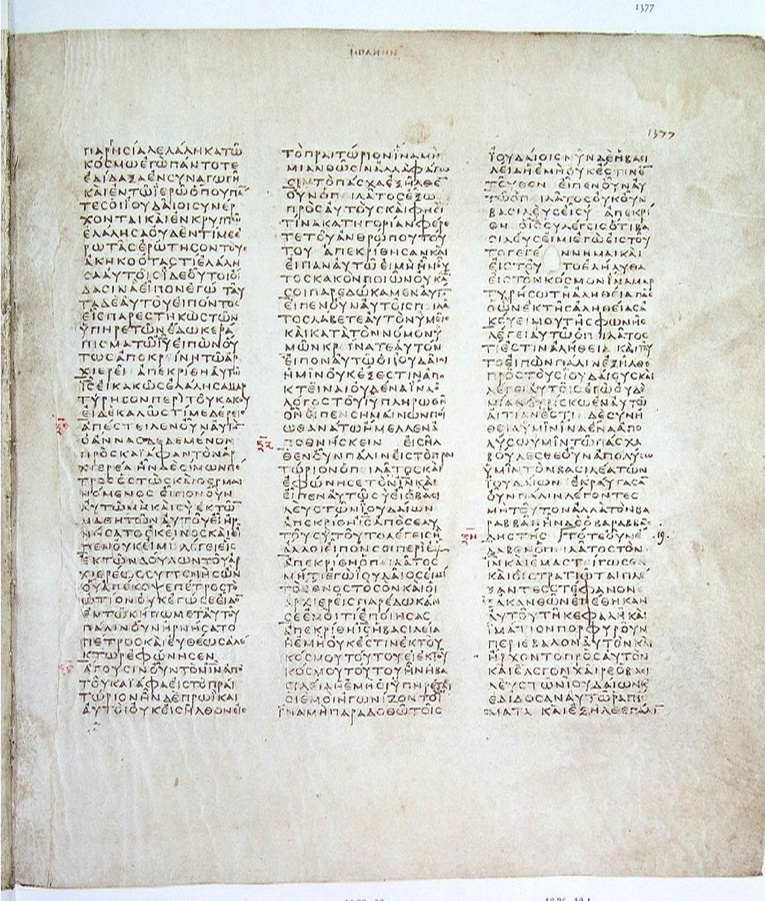 1377
ΙΩΑΝΗΝ
1377
ΠΑΡΗΣΙΑΛΕΛΑΛΗΚΑΤΩ
ΚΟΣΜΩΕΓΩΠΑΝΤΟΤΕ
ΕΔΙΔΑΞΑΕΝΣΥΝΑΓΩΓΗ
ΚΑΙΕΝΤΩΙΕΡΩΟΠΟΥΠΑ
ΤΕΣΟΙΙΟΥΔΑΙΟΙΣΥΝΕΡ
ΧΟΝΤΑΙΚΑΙΕΝΚΡΥΠΤΩ
ΕΛΑΛΗΣΑΟΥΔΕΝΤΙΜΕΕ
ΡΩΤΑΣΕΡΩΤΗΣΟΝΤΟΥΣ
ΑΚΗΚΟΟΤΑΣΤΙΕΛΑΛΗ
ΣΑΑΥΤΟΙΣΙΔΕΟΥΤΟΙΟΙ
ΔΑΣΙΝΑΕΙΠΟΝΕΓΩ ΤΑΥ
ΤΑΔΕΑΥΤΟΥΕΙΠΟΝΤΟΣ
ΕΙΣΠΑΡΕΣΤΗΚΩΣΤΩΝ
ΥΠΗΡΕΤΩΝΕΔΩΚΕΡΑ
ΠΙΣΜΑΤΩΙΥΕΙΠΩΝΟΥ
ΤΩΣΑΠΟΚΡΙΝΗΤΩΑΡ
ΧΙΕΡΕΙ ΑΠΕΚΡΙΘΗΑΥΤΩ
ΙΣΕΙΚΑΚΩΣΕΛΑΛΗΣΑΜΑΡ
ΤΥΡΗΣΟΝΠΕΡΙΤΟΥΚΑΚΟΥ
ΕΙΔΕΚΑΛΩΣΤΙΜΕΔΕΡΕΙΣ
ΑΠΕΣΤΕΙΛΕΝΟΥΝΑΥΤΟ
ΟΑΝΝΑΣΔΕΔΕΜΕΝΟΝ
ΠΡΟΣΚΑΙΑΦΑΝΤΟΝΑΡ
ΧΙΕΡΕΑ ΗΝΔΕΣΙΜΩΝΠΕ
ΤΡΟΣΕΣΤΩΣΚΑΙΘΕΡΜΑΙ
ΝΟΜΕΝΟΣ ΕΙΠΟΝΟΥΝ
ΑΥΤΩΜΗΚΑΙΣΥΕΚΤΩ
ΜΑΘΗΤΩΝΑΥΤΟΥΕΙΗΡ
ΝΗΣΑΤΟΕΚΕΙΝΟΣΚΑΙΕΙ
ΠΕΝΟΥΚΕΙΜΙ ΛΕΓΕΙΕΙΣ
ΕΚΤΩΝΔΟΥΛΩΝΤΟΥΑΡ
ΧΙΕΡΕΩΣΣΥΓΓΕΝΗΣΩΝ
ΟΥΑΠΕΚΟΨΕΠΕΤΡΟΣΤΟ
ΩΤΙΟΝΟΥΚΕΓΩΣΕΕΙΔΟ
ΕΝΤΩΚΗΠΩΜΕΤΑΥΤΟΥ
ΠΑΛΙΝΟΥΝΗΡΝΗΣΑΤΟ
ΠΕΤΡΟΣΚΑΙΕΥΘΕΩΣΑΛΕ
ΚΤΩΡΕΦΩΝΗΣΕΝ
ΑΓΟΥΣΙΝΟΥΝΤΟΝΙΝΑΠΟ
ΤΟΥΚΑΙΑΦΑΕΙΣΤΟΠΡΑΙ
ΤΩΡΙΟΝΗΝΔΕΠΡΩΙΚΑΙ
ΑΥΤΟΙΟΥΚΕΙΣΗΛΘΟΝΕΙΣ
ΤΟΠΡΑΙΤΩΡΙΟΝΙΝΑΜΗ
ΜΙΑΝΘΩΣΙΝΑΛΛΑΦΑΓΩ
ΣΙΝΤΟΠΑΣΧΑΕΞΗΛΘΕ
ΟΥΝΟΠΕΙΛΑΤΟΣΕΞΩ
ΠΡΟΣΑΥΤΟΥΣΚΑΙΦΗΣΙ
ΤΙΝΑΚΑΤΗΓΟΡΙΑΝΦΕΡΕ
ΤΕΤΟΥΑΝΘΡΩΠΟΥΤΟΥ
ΤΟΥ ΑΠΕΚΡΙΘΗΣΑΝΚΑΙ
ΕΙΠΑΝΑΥΤΩΕΙΜΗΗΝΟΥ
ΤΟΣΚΑΚΟΝΠΟΙΩΝΟΥΚΑ
ΣΟΙΠΑΡΕΔΩΚΑΜΕΝΑΥΤΟ
ΕΙΠΕΝΟΥΝΑΥΤΟΙΣΠΕΙΛΑ
ΤΟΣΛΑΒΕΤΕΑΥΤΟΝΥΜΕΙΣ
ΚΑΙΚΑΤΑΤΟΝΝΟΜΟΝΥ
ΜΩΝΚΡΙΝΑΤΕΑΥΤΟΝ
ΕΙΠΟΝΑΥΤΩΟΙΙΟΥΔΑΙΟΙ
ΗΜΙΝΟΥΚΕΞΕΣΤΙΝΑΠΟ
ΚΤΕΙΝΑΙΟΥΔΕΝΑΙΝΑΟ
ΛΟΓΟΣΤΟΥΙΥΠΛΗΡΩΘΗ
ΟΝΕΙΠΕΝΣΗΜΑΙΝΩΝΠΟΙ
ΩΘΑΝΑΤΩΗΜΕΛΛΕΝΑ
ΠΟΘΝΗΣΚΕΙΝ ΕΙΣΗΛ
ΘΕΝΟΥΝΠΑΛΙΝΕΙΣΤΟΠΡΑΙ
ΤΩΡΙΟΝΟΠΕΙΛΑΤΟΣΚΑΙ
ΕΦΩΝΗΣΕΤΟΝΙΝΚΑΙ
ΕΙΠΕΝΑΥΤΩΣΥΕΙΟΒΑΣΙ
ΛΕΥΣΤΩΝΙΟΥΔΑΙΩΝ
ΑΠΕΚΡΙΘΗΙΣΑΠΟΣΕΑΥ
ΤΟΥΣΥΤΟΥΤΟΛΕΓΕΙΣΗ
ΑΛΛΟΙΕΙΠΟΝΣΟΙΠΕΡΙΕΜΟΥ
ΑΠΕΚΡΙΘΗΟΠΕΙΛΑΤΟΣ
ΜΗΤΙΕΓΩΙΟΥΔΑΙΟΣΕΙΜΙ
ΤΟΕΘΝΟΣΤΟΣΟΝΚΑΙΟΙ
ΑΡΧΙΕΡΕΙΣΠΑΡΕΔΩΚΑΝ
ΣΕΕΜΟΙΤΙΕΠΟΙΗΣΑΣ
ΑΠΕΚΡΙΘΗΙΣΗΒΑΣΙΛΕΙΑ
ΗΕΜΗΟΥΚΕΣΤΙΝΕΚΤΟΥ
ΚΟΣΜΟΥΤΟΥΤΟΥΕΙΕΚΤΟΥ
ΚΟΣΜΟΥΤΟΥΤΟΥΗΝΗΒΑ
ΣΙΛΕΙΑΗΕΜΗΟΙΥΠΗΡΕΤΑΙ
ΟΙΕΜΟΙΗΓΩΝΙΖΟΝΤΟΙ
ΝΑΜΗΠΑΡΑΔΟΘΩΤΟΙΣ
ΙΟΥΔΑΙΟΙΣΝΥΝΔΕΗΒΑΣΙ
ΛΕΙΑΗΕΜΗΟΥΚΕΣΤΙΝΕ
ΤΕΥΘΕΝ ΕΙΠΕΝΟΥΝΑΥ
ΤΩΟΠΕΙΛΑΤΟΣΟΥΚΟΥΝ
ΒΑΣΙΛΕΥΣΕΙΣΥ ΑΠΕΚΡΙ
ΘΗ ΟΙΣΣΥΛΕΓΕΙΣΟΤΙΒΑ
ΣΙΛΕΥΣΕΙΜΙΕΓΩΕΙΣΤΟΥ
ΤΟΓΕΓΕΝΝΗΜΑΙΚΑΙ
ΕΙΣΤΟΥΤΟΕΛΗΛΥΘΑ
ΕΙΣΤΟΝΚΟΣΜΟΝΙΝΑΜΑΡ
ΤΥΡΗΣΩΤΗΑΛΗΘΕΙΑΠΑΣ
ΟΩΝΕΚΤΗΣΑΛΗΘΕΙΑΣΑ
ΚΟΥΕΙΜΟΥΤΗΣΦΩΝΗΣ
ΛΕΓΕΙΑΥΤΩΟΠΕΙΛΑΤΟΣ
ΤΙΕΣΤΙΝΑΛΗΘΕΙΑ ΚΑΙΤΟΥ
ΤΟΕΙΠΩΝΠΑΛΙΝΕΞΗΛΘΕ
ΠΡΟΣΤΟΥΣΙΟΥΔΑΙΟΥΣΚΑΙ
ΛΕΓΕΙΑΥΤΟΙΣΕΓΩΟΥΔΕ
ΜΙΑΝΕΥΡΙΣΚΩΕΝΑΥΤΩ
ΑΙΤΙΑΝΕΣΤΙ ΔΕΣΥΝΗ
ΘΕΙΑΥΜΙΝΙΝΑΕΝΑΑΠΟ
ΛΥΣΩΥΜΙΝΤΩΠΑΣΧΑ
ΒΟΥΛΕΣΘΕΟΥΝΑΠΟΛΥΣΩ
ΥΜΙΝΤΟΝΒΑΣΙΛΕΑΤΩΝ
ΙΟΥΔΑΙΩΝ ΕΚΡΑΥΓΑΣΑ
ΟΥΝΠΑΛΙΝΛΕΓΟΝΤΕΣ
ΜΗΤΟΥΤΟΝΑΛΛΑΤΟΝΒΑ
ΡΑΒΒΑΝΗΝΔΕΟΒΑΡΑΒΒΑΣ
ΛΗΣΤΗΣ ΤΟΤΕΟΥΝΕ
ΛΑΒΕΝΟΠΕΙΛΑΤΟΣΤΟΝ
ΙΝΚΑΙΕΜΑΣΤΕΙΓΩΣΕ
ΚΑΙΟΙΣΤΡΑΤΙΩΤΑΙΠΛΕ
ΞΑΝΤΕΣΣΤΕΦΑΝΟΝ
ΕΞΑΚΑΝΘΩΝΕΠΕΘΗΚΑΝ
ΑΥΤΟΥΤΗΚΕΦΑΛΗΚΑΙ
ΙΜΑΤΙΟΝΠΟΡΦΥΡΟΥΝ
ΠΕΡΙΕΒΑΛΟΝΑΥΤΟΝΚΑΙ
ΗΡΧΟΝΤΟΠΡΟΣΑΥΤΟΝ
ΚΑΙΕΛΕΓΟΝΧΑΙΡΕΟΒΑΣΙ
ΛΕΥΣΤΩΝΙΟΥΔΑΙΩΝΚΑΙ
ΕΔΙΔΟΣΑΝΑΥΤΩΡΑΠΙ
ΣΜΑΤΑ ΚΑΙΕΞΗΛΘΕΠΑΛΙ